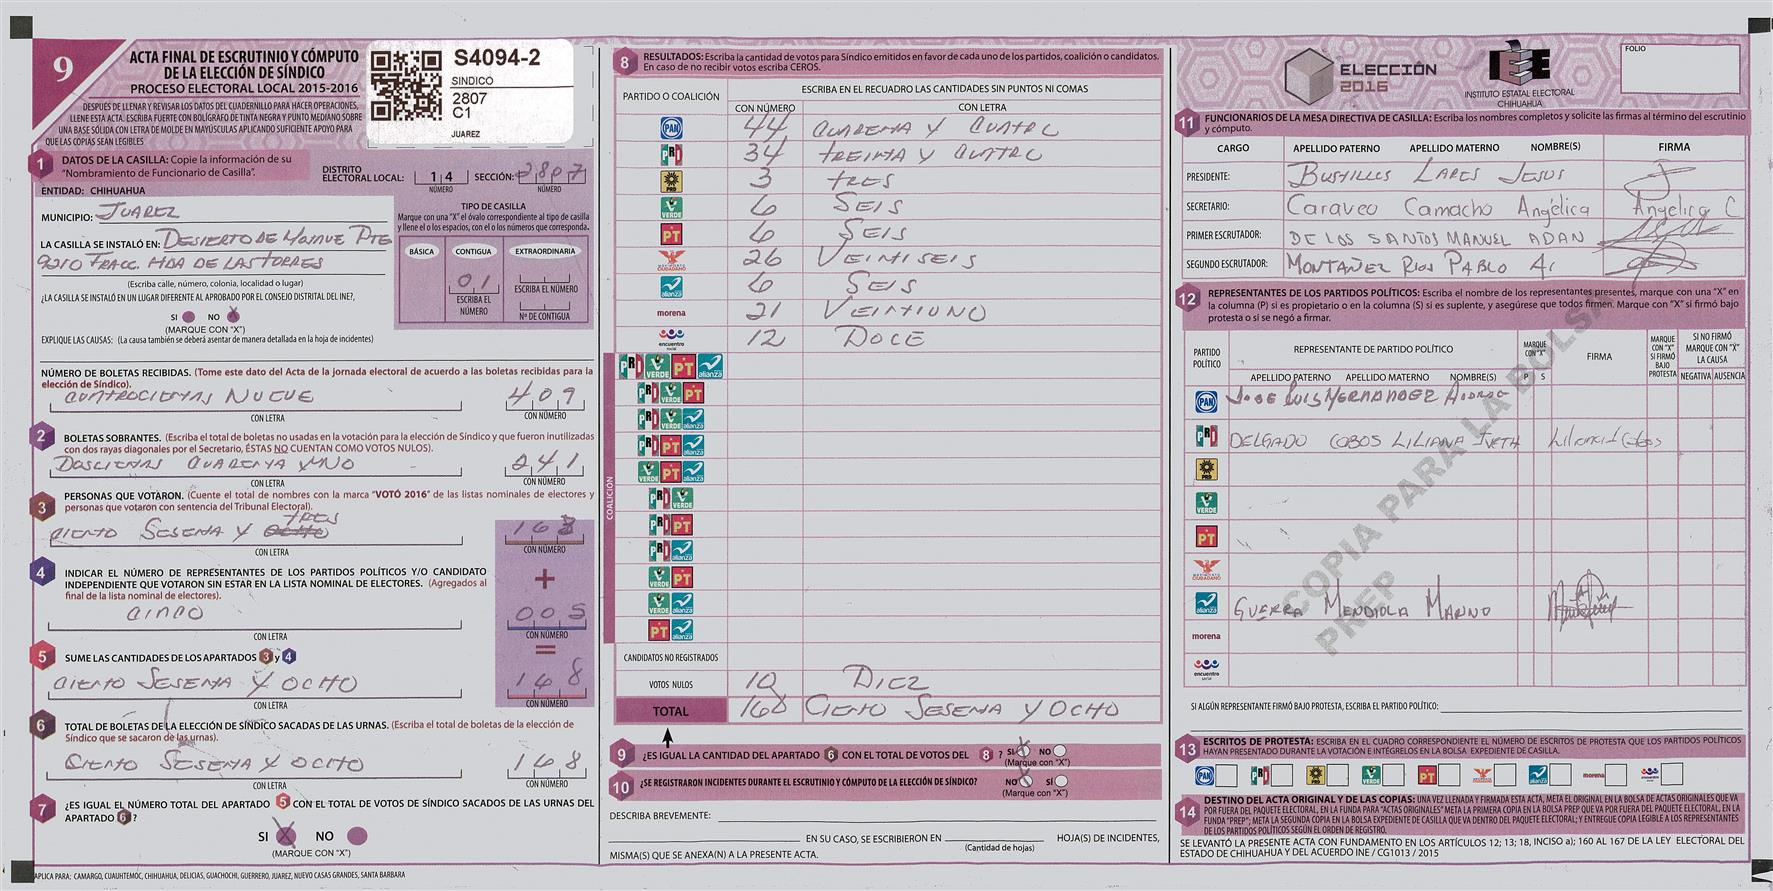 9
ACTA FINAL DE ESCRUTINIO Y CÓMPUTO
DE LA ELECCIÓN DE SÍNDICO
PROCESO ELECTORAL LOCAL 2015-2016
DESPUÉS DE LLENAR Y REVISAR LOS DATOS DEL CUADERNILLO PARA HACER OPERACIONES,
LLENE ESTA ACTA. ESCRIBA FUERTE CON BOLÍGRAFO DE TINTA NEGRA Y PUNTO MEDIANO SOBRE
UNA BASE SÓLIDA CON LETRA DE MOLDE EN MAYÚSCULAS APLICANDO SUFICIENTE APOYO PARA
QUE LAS COPIAS SEAN LEGIBLES
S4094-2
SINDICO
2807
C1
JUAREZ
1 DATOS DE LA CASILLA: Copie la información de su
"Nombramiento de Funcionario de Casilla".
DISTRITO ELECTORAL LOCAL: 14 NÚMERO SECCIÓN: 2807 NÚMERO
ENTIDAD: CHIHUAHUA
MUNICIPIO: JUAREZ
LA CASILLA SE INSTALÓ EN: DESIERTO DE MOJAVE PTE
9210 FRACC. HDA DE LAS TORRES
(Escriba calle, número, colonia, localidad o lugar)
¿LA CASILLA SE INSTALÓ EN UN LUGAR DIFERENTE AL APROBADO POR EL CONSEJO DISTRITAL DEL INE?,
SI NO X
(MARQUE CON "X")
EXPLIQUE LAS CAUSAS: (La causa también se deberá asentar de manera detallada en la hoja de incidentes)
TIPO DE CASILLA
Marque con una "X" el óvalo correspondiente al tipo de casilla
y llene el o los espacios, con el o los números que corresponda.
BÁSICA CONTIGUA EXTRAORDINARIA
01
ESCRIBA EL NÚMERO ESCRIBA EL NÚMERO
Nº DE CONTIGUA
NÚMERO DE BOLETAS RECIBIDAS. (Tome este dato del Acta de la jornada electoral de acuerdo a las boletas recibidas para la
elección de Síndico).
CUATROCIENTAS NUEVE 409
CON LETRA CON NÚMERO
2 BOLETAS SOBRANTES. (Escriba el total de boletas no usadas en la votación para la elección de Síndico y que fueron inutilizadas
con dos rayas diagonales por el Secretario, ÉSTAS NO CUENTAN COMO VOTOS NULOS).
DOSCIENTAS CUARENTA Y UNO 241
CON LETRA CON NÚMERO
3 PERSONAS QUE VOTARON. (Cuente el total de nombres con la marca "VOTÓ 2016" de las listas nominales de electores y
personas que votaron con sentencia del Tribunal Electoral).
TRES
CIENTO SESENTA Y OCHO 163
CON LETRA CON NÚMERO
4 INDICAR EL NÚMERO DE REPRESENTANTES DE LOS PARTIDOS POLÍTICOS Y/O CANDIDATO
INDEPENDIENTE QUE VOTARON SIN ESTAR EN LA LISTA NOMINAL DE ELECTORES. (Agregados al
final de la lista nominal de electores).
+
CINCO 005
CON LETRA CON NÚMERO
5 SUME LAS CANTIDADES DE LOS APARTADOS 3 y 4
=
CIENTO SESENTA Y OCHO 168
CON LETRA CON NÚMERO
6 TOTAL DE BOLETAS DE LA ELECCIÓN DE SÍNDICO SACADAS DE LAS URNAS. (Escriba el total de boletas de la elección de
Síndico que se sacaron de las urnas).
CIENTO SESENTA Y OCHO 168
CON LETRA CON NÚMERO
7 ¿ES IGUAL EL NÚMERO TOTAL DEL APARTADO 5 CON EL TOTAL DE VOTOS DE SÍNDICO SACADOS DE LAS URNAS DEL
APARTADO 6?
SI X NO
(MARQUE CON "X")
APLICA PARA: CAMARGO, CUAUHTEMOC, CHIHUAHUA, DELICIAS, GUACHOCHI, GUERRERO, JUAREZ, NUEVO CASAS GRANDES, SANTA BARBARA
8 RESULTADOS: Escriba la cantidad de votos para Síndico emitidos en favor de cada uno de los partidos, coalición o candidatos.
En caso de no recibir votos escriba CEROS.
PARTIDO O COALICIÓN ESCRIBA EN EL RECUADRO LAS CANTIDADES SIN PUNTOS NI COMAS
CON NÚMERO CON LETRA
PAN 44 CUARENTA Y CUATRO
PRI 34 TREINTA Y CUATRO
PRD 3 TRES
VERDE 6 SEIS
PT 6 SEIS
MOVIMIENTO CIUDADANO 26 VEINTISEIS
alianza 6 SEIS
morena 21 VEINTIUNO
encuentro social 12 DOCE
COALICIÓN
PRI VERDE PT alianza
PRI VERDE PT
PRI VERDE alianza
PRI PT alianza
VERDE PT alianza
PRI VERDE
PRI PT
PRI alianza
VERDE PT
VERDE alianza
PT alianza
CANDIDATOS NO REGISTRADOS
VOTOS NULOS 10 DIEZ
TOTAL 168 CIENTO SESENTA Y OCHO
9 ¿ES IGUAL LA CANTIDAD DEL APARTADO 6 CON EL TOTAL DE VOTOS DEL 8 ? SI X NO
(Marque con "X")
10 ¿SE REGISTRARON INCIDENTES DURANTE EL ESCRUTINIO Y CÓMPUTO DE LA ELECCIÓN DE SÍNDICO? NO X SÍ
(Marque con "X")
DESCRIBA BREVEMENTE:
EN SU CASO, SE ESCRIBIERON EN HOJA(S) DE INCIDENTES,
(Cantidad de hojas)
MISMA(S) QUE SE ANEXA(N) A LA PRESENTE ACTA.
ELECCIÓN
2016
IEE
INSTITUTO ESTATAL ELECTORAL
CHIHUAHUA
FOLIO
11 FUNCIONARIOS DE LA MESA DIRECTIVA DE CASILLA: Escriba los nombres completos y solicite las firmas al término del escrutinio
y cómputo.
CARGO APELLIDO PATERNO APELLIDO MATERNO NOMBRE(S) FIRMA
PRESIDENTE: BUSTILLOS LARES JESUS
SECRETARIO: Caraveo Camacho Angélica Angelica C
PRIMER ESCRUTADOR: DE LOS SANTOS MANUEL ADAN
SEGUNDO ESCRUTADOR: MONTAÑEZ RIOS PABLO A
12 REPRESENTANTES DE LOS PARTIDOS POLÍTICOS: Escriba el nombre de los representantes presentes, marque con una "X" en
la columna (P) si es propietario o en la columna (S) si es suplente, y asegúrese que todos firmen. Marque con "X" si firmó bajo
protesta o si se negó a firmar.
PARTIDO POLÍTICO REPRESENTANTE DE PARTIDO POLÍTICO MARQUE CON "X" FIRMA MARQUE CON "X" SI FIRMÓ BAJO PROTESTA SI NO FIRMÓ MARQUE CON "X" LA CAUSA
APELLIDO PATERNO APELLIDO MATERNO NOMBRE(S) P S NEGATIVA AUSENCIA
PAN JOSE LUIS HERNANDEZ
PRI DELGADO COBOS LILIANA IVETH Liliana Cobos
PRD
VERDE
PT
MOVIMIENTO CIUDADANO
alianza GUERRA MENDIOLA MARINO
morena
encuentro social
COPIA PARA LA BOLSA
PREP
SI ALGÚN REPRESENTANTE FIRMÓ BAJO PROTESTA, ESCRIBA EL PARTIDO POLÍTICO:
13 ESCRITOS DE PROTESTA: ESCRIBA EN EL CUADRO CORRESPONDIENTE EL NÚMERO DE ESCRITOS DE PROTESTA QUE LOS PARTIDOS POLÍTICOS
HAYAN PRESENTADO DURANTE LA VOTACIÓN E INTÉGRELOS EN LA BOLSA EXPEDIENTE DE CASILLA.
PAN PRI PRD VERDE PT MOVIMIENTO CIUDADANO alianza morena encuentro social
14 DESTINO DEL ACTA ORIGINAL Y DE LAS COPIAS: UNA VEZ LLENADA Y FIRMADA ESTA ACTA, META EL ORIGINAL EN LA BOLSA DE ACTAS ORIGINALES QUE VA
POR FUERA DEL PAQUETE ELECTORAL, EN LA FUNDA PARA "ACTAS ORIGINALES" META LA PRIMERA COPIA EN LA BOLSA PREP QUE VA POR FUERA DEL PAQUETE ELECTORAL, EN LA
FUNDA "PREP"; META LA SEGUNDA COPIA EN LA BOLSA EXPEDIENTE DE CASILLA QUE VA DENTRO DEL PAQUETE ELECTORAL; Y ENTREGUE COPIA LEGIBLE A LOS REPRESENTANTES
DE LOS PARTIDOS POLÍTICOS SEGÚN EL ORDEN DE REGISTRO.
SE LEVANTÓ LA PRESENTE ACTA CON FUNDAMENTO EN LOS ARTÍCULOS 12; 13; 18, INCISO a); 160 AL 167 DE LA LEY ELECTORAL DEL
ESTADO DE CHIHUAHUA Y DEL ACUERDO INE / CG1013 / 2015